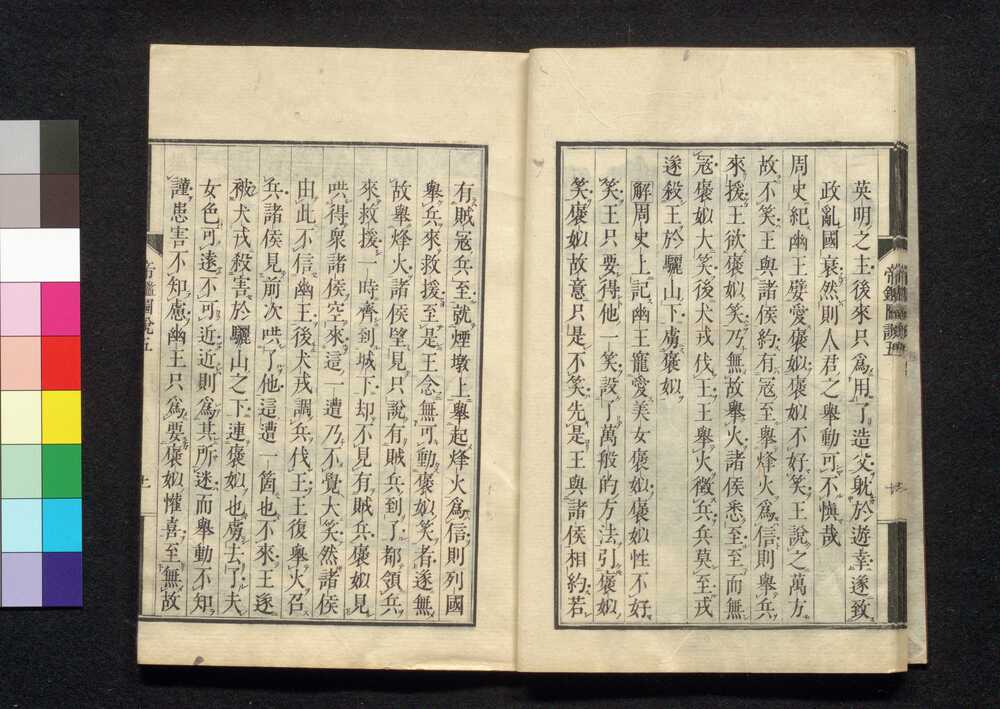 帝鑑圖說五
英明之主後來只爲用了造父躭於遊幸遂致
政亂國衰然則人君之舉動可不愼哉
周史紀幽王嬖愛褒姒褒姒不好笑王說之萬方
故不笑王與諸侯約有寇至舉烽火爲信則舉兵
來援王欲褒姒笑乃無故舉火諸侯悉至至而無
寇褒姒大笑後犬戎伐王王舉火徵兵兵莫至戎
遂殺王於驪山下虜褒姒
解周史上記幽王寵愛美女褒姒褒姒性不好
笑王只要得他一笑設了萬般的方法引褒姒
笑褒姒故意只是不笑先是王與諸侯相約若
有賊寇兵至就煙墩上舉起烽火爲信則列國
舉兵來救援至是王念無可動褒姒笑者遂無
故舉烽火諸侯望見只說有賊兵到了都領兵
來救援一時齊到城下却不見有賊兵褒姒見
哄得衆諸侯空來這一遭乃不覺大笑然諸侯
由此不信幽王後犬戎調兵伐王王復舉火召
兵諸侯見前次哄了他這遭一箇也不來王遂
被犬戎殺害於驪山之下連褒姒也虜去了夫
女色可遠不可近近則爲其所迷而舉動不知
謹患害不知慮幽王只爲要褒姒懽喜至無故
帝鑑圖說五